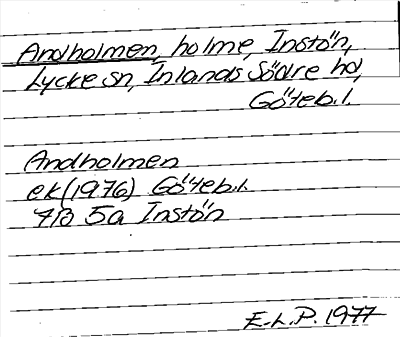 Andholmen, holme, Instön,
Lycke sn, Inlands Södre hd,
Göteb. l.
Andholmen
ek (1976) Göteb. l.
7B 5a Instön
E. L. P. 1977